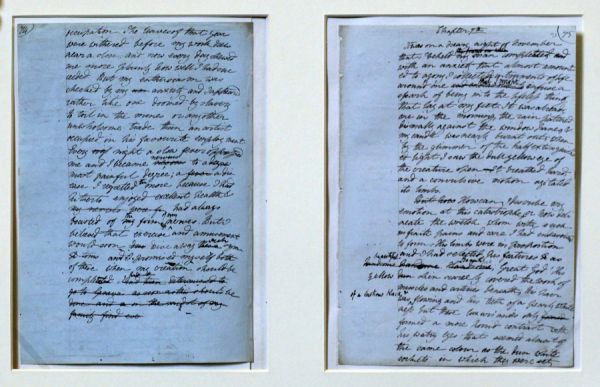 occupation. The leaves of that year
were withered before my work drew
near a close. and now every day shewed
me more plainly how well I had suc
ceeded But my enthusiasm was
checked by my anxiety and I appeared
rather like one doomed by slavery
to toil in the mines or any other
unwholsome trade than an artist
occupied in his favourite employment
Every night a slow fever oppressed
nervous
me and I became to a
most painful degree; a disea
se I regretted more because I had
hitherto enjoyed excellent health &
had always
boasted of my firm nerves. But I
believed that exercise and amusement
would soon drive away such symp
toms and I promised myself both
of these when my creation should be
completed
family
75
Chapter 7th
It was on a dreary night of November
that I beheld my man completed and
with an anxiety that almost amount
ed to agony, I collected instruments of life
that I might
around me infuse a
spark of being into the lifeless thing
that lay at my feet. It was already
one in the morning, the rain pattered
dismally against the window panes &
my candle was nearly burnt out, when
by the glimmer of the half extinguish
ed light I saw the dull yellow eye of
the creature open. It breathed hard
and a convulsive motion agitated
its limbs.
But how can I describe my
emotion at this catastrophe; or how deli
neate the wretch whom with such
infinite pains and care I had endeavoured
to form. His limbs were in proportion
and I had selected his features as
beautiful
handsome handsome Great God! His
yellow skin scarcely covered the work of
muscles and arteries beneath; his hair
of a lustrous black
was flowing and his teeth of a pearly white
ness but these luxuriances only formed
formed a more horrid contrast with
his watry eyes that seemed almost of
the same colour as the dun white
sockets in which they were set